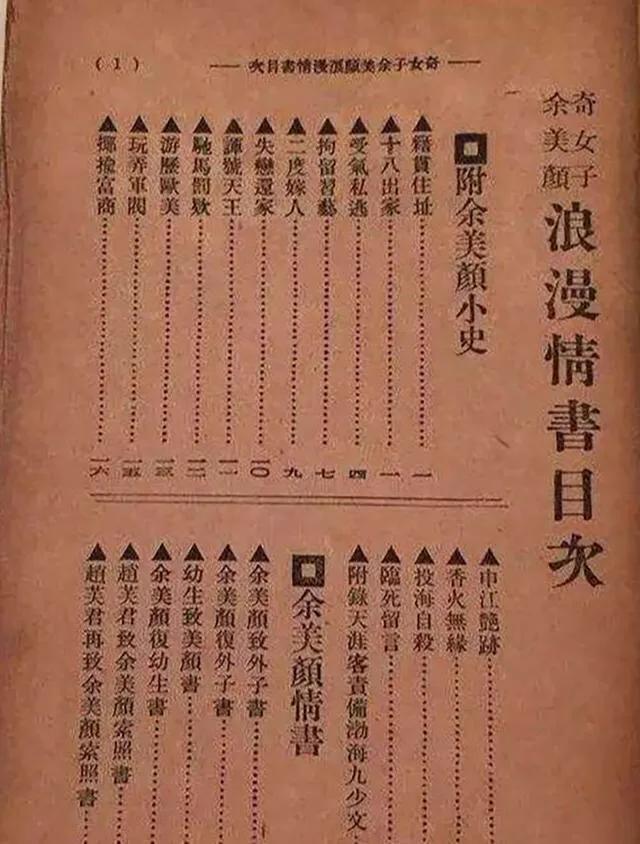 奇女子余美顏浪漫情書目次
(1)
奇女子
余美顏
浪漫情書目次
附余美顏小史
▲籍貫住址………一
▲十八出家………一
▲受氣私逃………四
▲拘留習藝………七
▲二度嫁人………九
▲失戀還家………一〇
▲諢號天王………一一
▲馳馬罰欵………一二
▲游歷歐美………一三
▲玩弄軍閥………一五
▲揶揄富商………一六
▲申江艷跡………
▲香火無緣………
▲投海自殺………
▲臨死留言………
▲附錄天涯客責備渤海九少文…
余美顏情書
▲余美顏致外子書………
▲余美顏復外子書………
▲幼生致美顏書………
▲余美顏復幼生書………
▲趙芙君致余美顏索照書…
▲趙芙君再致余美顏索照書…